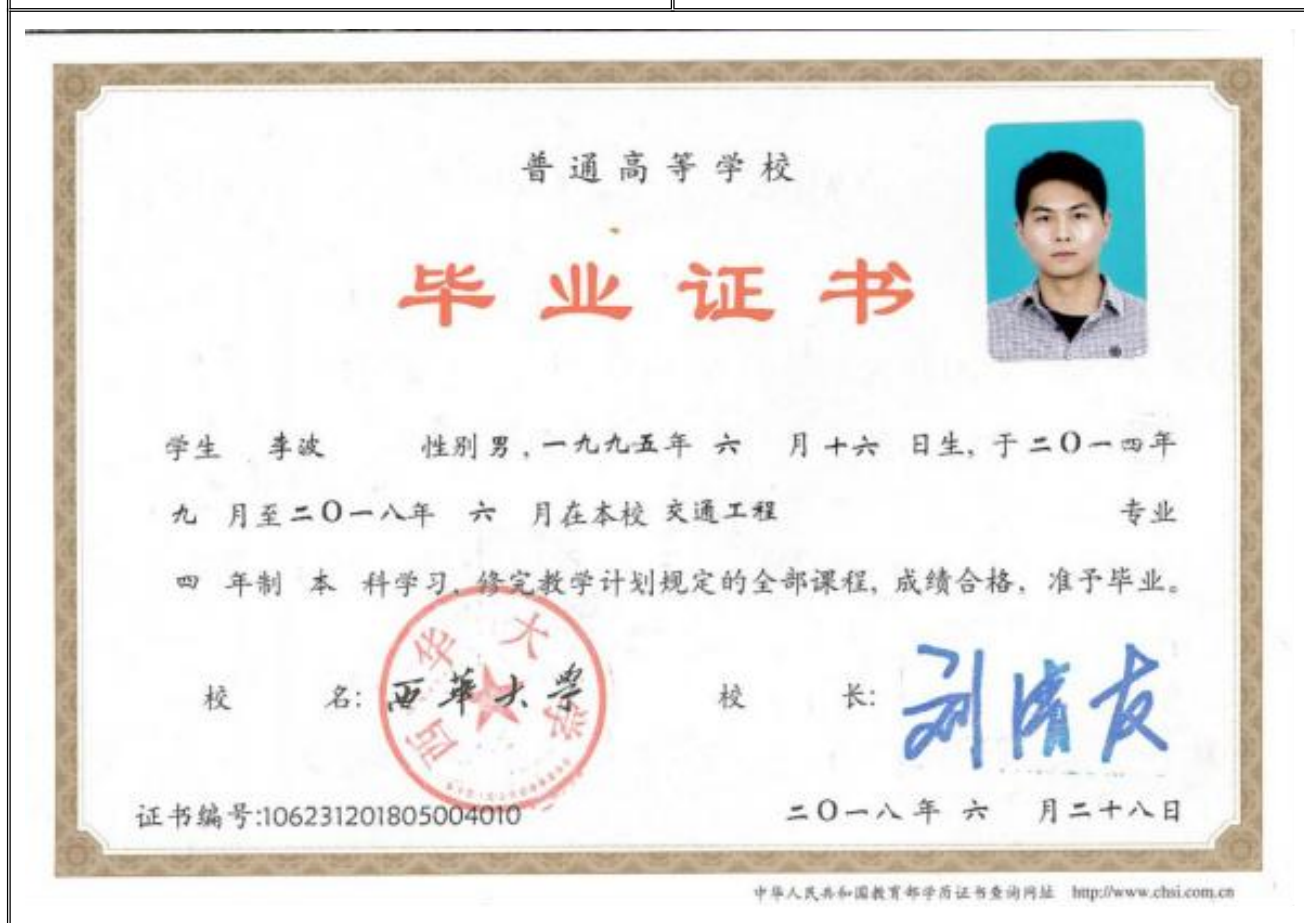 普通高等学校
毕业证书
学生 李波 性别 男，一九九五年 六 月 十六 日生，于 二〇一四年
九 月至 二〇一八年 六 月在本校 交通工程 专业
四 年制 本 科学习，修完教学计划规定的全部课程，成绩合格，准予毕业。
校 名：西華大學 校 长：刘清友
西华大学
证书编号:106231201805004010 二〇一八年 六 月二十八日
中华人民共和国教育部学历证书查询网址 http://www.chsi.com.cn